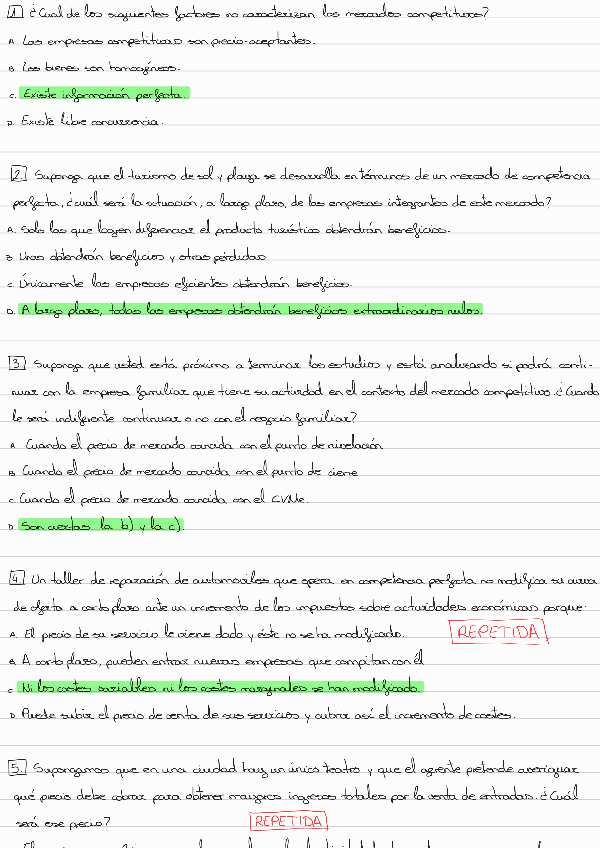 1. ¿Cuál de los siguientes factores no caracterizan los mercados competitivos?
A. Las empresas competitivas son precio-aceptantes.
B. Los bienes son homogéneos.
C. Existe información perfecta.
D. Existe libre concurrencia.
2. Suponga que el turismo de sol y playa se desarrolla en términos de un mercado de competencia
perfecta, ¿cuál será la situación, a largo plazo, de las empresas integrantes de este mercado?
A. Solo las que logren diferenciar el producto turístico obtendrán beneficios.
B. Unas obtendrán beneficios y otras pérdidas
C. Únicamente las empresas eficientes obtendrán beneficios.
D. A largo plazo, todas las empresas obtendrán beneficios extraordinarios nulos.
3 Suponga que usted está próximo a terminar los estudios y está analizando si podrá conti-
nuar con la empresa familiar que tiene su actividad en el contexto del mercado competitivo. ¿Cuando
le será indiferente continuar o no con el negocio familiar?
A. Cuando el precio de mercado coincida con el punto de nivelación
B. Cuando el precio de mercado coincida con el punto de cierre
C. Cuando el precio de mercado coincida con el CVMe.
D. Son ciertas la b) y la c).
4 Un taller de reparación de automóviles que opera en competencia perfecta no modifica su curva
de oferta a corto plazo ante un incremento de los impuestos sobre actividades económicas porque:
A. El precio de su servicio le viene dado y éste no se ha modificado. REPETIDA
B. A corto plazo, pueden entrar nuevas empresas que compitan con él
C. Ni los costes variables ni los costes marginales se han modificado.
D. Puede subir el precio de venta de sus servicios y cubrir así el incremento de costes.
5. Supongamos que en una ciudad hay un único teatro y que el agente pretende averiguar
qué precio debe cobrar para obtener mayores ingresos totales por la venta de entradas. ¿Cuál
será ese precio? REPETIDA